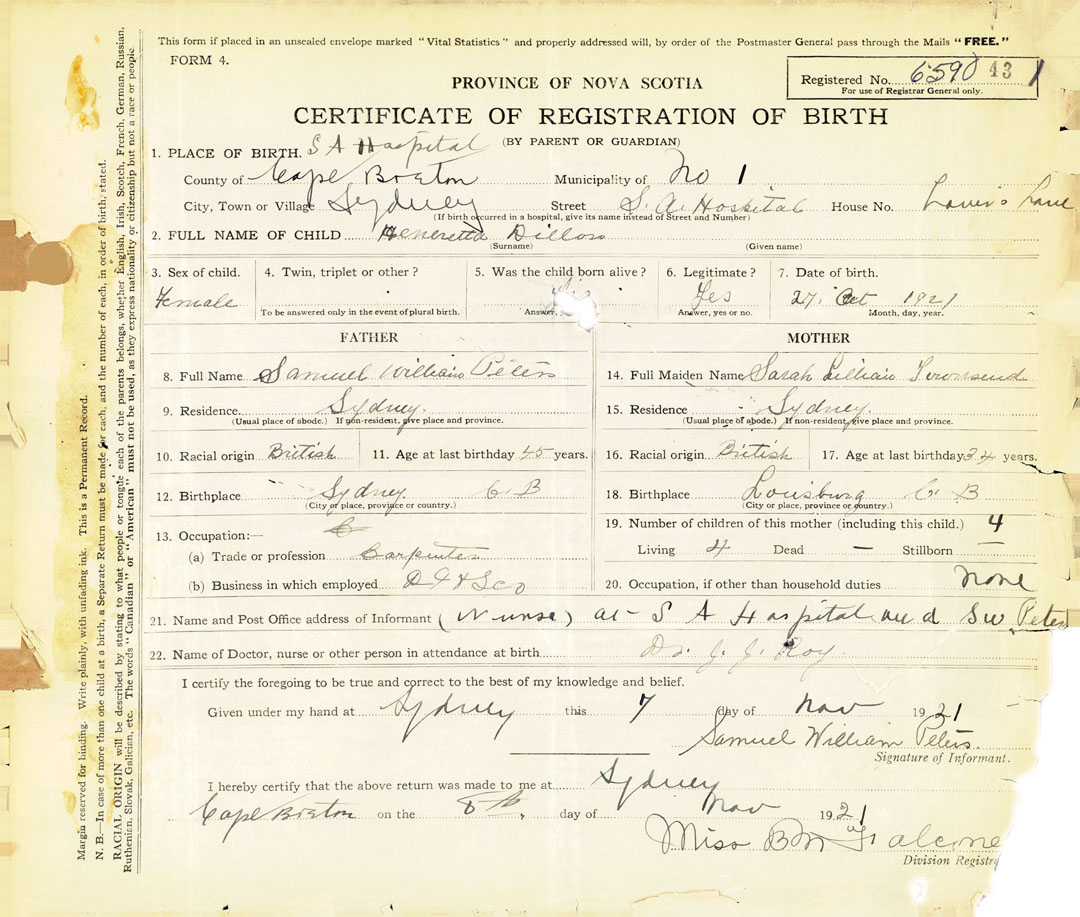 This form if placed in an unsealed envelope marked "Vital Statistics" and properly addressed will, by order of the Postmaster General pass through the Mails "FREE."
FORM 4.
Registered No. 6590 43 1
For use of Registrar General only.
PROVINCE OF NOVA SCOTIA
CERTIFICATE OF REGISTRATION OF BIRTH
(BY PARENT OR GUARDIAN)
1. PLACE OF BIRTH. S A Hospital
County of Cape Breton Municipality of No 1
City, Town or Village Sydney Street S. A. Hospital House No. Lane
(If birth occurred in a hospital, give its name instead of Street and Number)
2. FULL NAME OF CHILD Heneretta
(Surname) (Given name)
3. Sex of child. 4. Twin, triplet or other? 5. Was the child born alive? 6. Legitimate? 7. Date of birth.
Female Yes 27. Oct 1921
To be answered only in the event of plural birth. Answer, Answer, yes or no. Month, day, year.
FATHER MOTHER
8. Full Name Samuel William Peters 14. Full Maiden Name Sarah Lillian Townsend
9. Residence Sydney. 15. Residence Sydney.
(Usual place of abode.) If non-resident, give place and province. (Usual place of abode.) If non-resident, give place and province.
10. Racial origin British 11. Age at last birthday 45 years. 16. Racial origin British 17. Age at last birthday 34 years.
12. Birthplace Sydney. C B 18. Birthplace Louisburg C. B
(City or place, province or country.) (City or place, province or country.)
13. Occupation:— 19. Number of children of this mother (including this child.) 4
(a) Trade or profession Carpenter Living 4 Dead — Stillborn
(b) Business in which employed D I & S Co 20. Occupation, if other than household duties None
21. Name and Post Office address of Informant (Nurse) at S A Hospital and S W Peters
22. Name of Doctor, nurse or other person in attendance at birth Dr. J. J. Roy.
I certify the foregoing to be true and correct to the best of my knowledge and belief.
Given under my hand at Sydney this 7 day of Nov 1921
Samuel William Peters.
Signature of Informant.
I hereby certify that the above return was made to me at Sydney
Cape Breton on the 8th, day of Nov 1921
Miss B M
Division Registra
Margin reserved for binding. Write plainly, with unfading ink. This is a Permanent Record.
N. B.—In case of more than one child at a birth, a Separate Return must be made for each, and the number of each, in order of birth, stated.
RACIAL ORIGIN will be described by stating to what people or tongue each of the parents belongs, whether English, Irish, Scotch, French, German, Russian,
Ruthenian, Slovak, Galician, etc. The words "Canadian" or "American" must not be used, as they express nationality or citizenship but not a race or people.